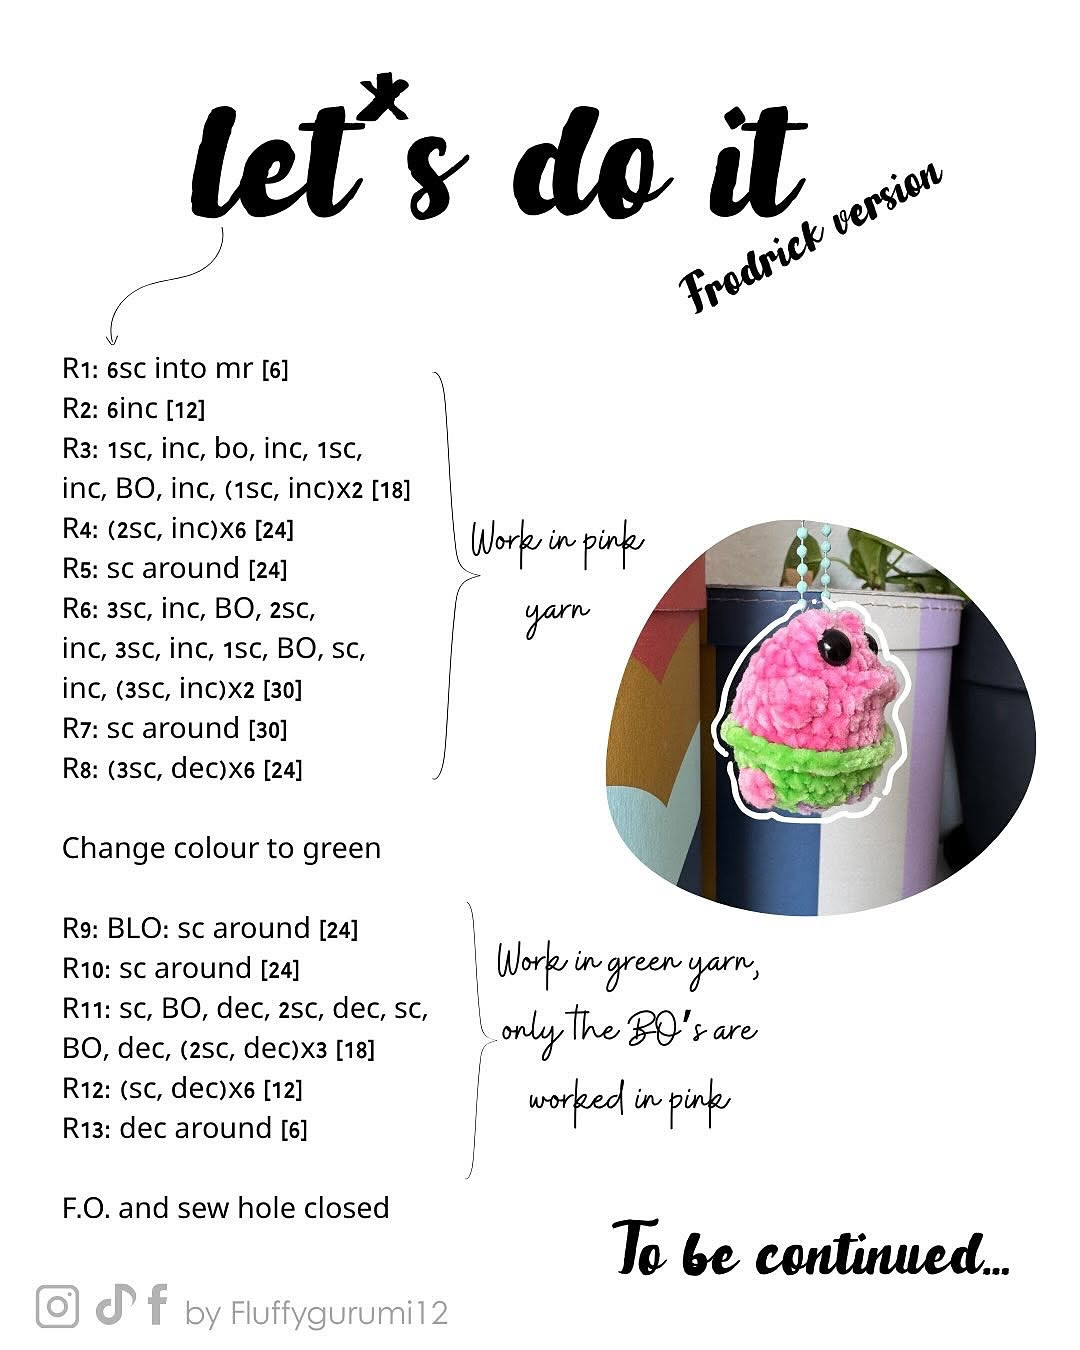 let*s do it
Frodrick version
R1: 6sc into mr [6]
R2: 6inc [12]
R3: 1sc, inc, bo, inc, 1sc,
inc, BO, inc, (1sc, inc)x2 [18]
R4: (2sc, inc)x6 [24]
R5: sc around [24]
R6: 3sc, inc, BO, 2sc,
inc, 3sc, inc, 1sc, BO, sc,
inc, (3sc, inc)x2 [30]
R7: sc around [30]
R8: (3sc, dec)x6 [24]
Work in pink
yarn
Change colour to green
R9: BLO: sc around [24]
R10: sc around [24]
R11: sc, BO, dec, 2sc, dec, sc,
BO, dec, (2sc, dec)x3 [18]
R12: (sc, dec)x6 [12]
R13: dec around [6]
Work in green yarn,
only the BO's are
worked in pink
F.O. and sew hole closed
To be continued...
by Fluffygurumi12